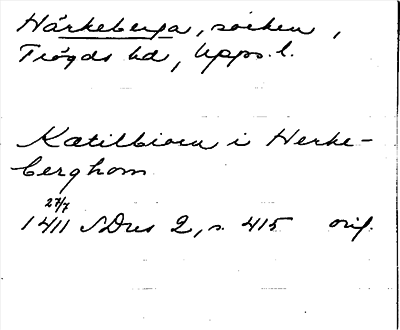 Härkeberga, socken,
Trögds hd, Upps. l.
Katilbiorn i Herke-
berghom
27/7
1411 SDns 2, s. 415 orig.